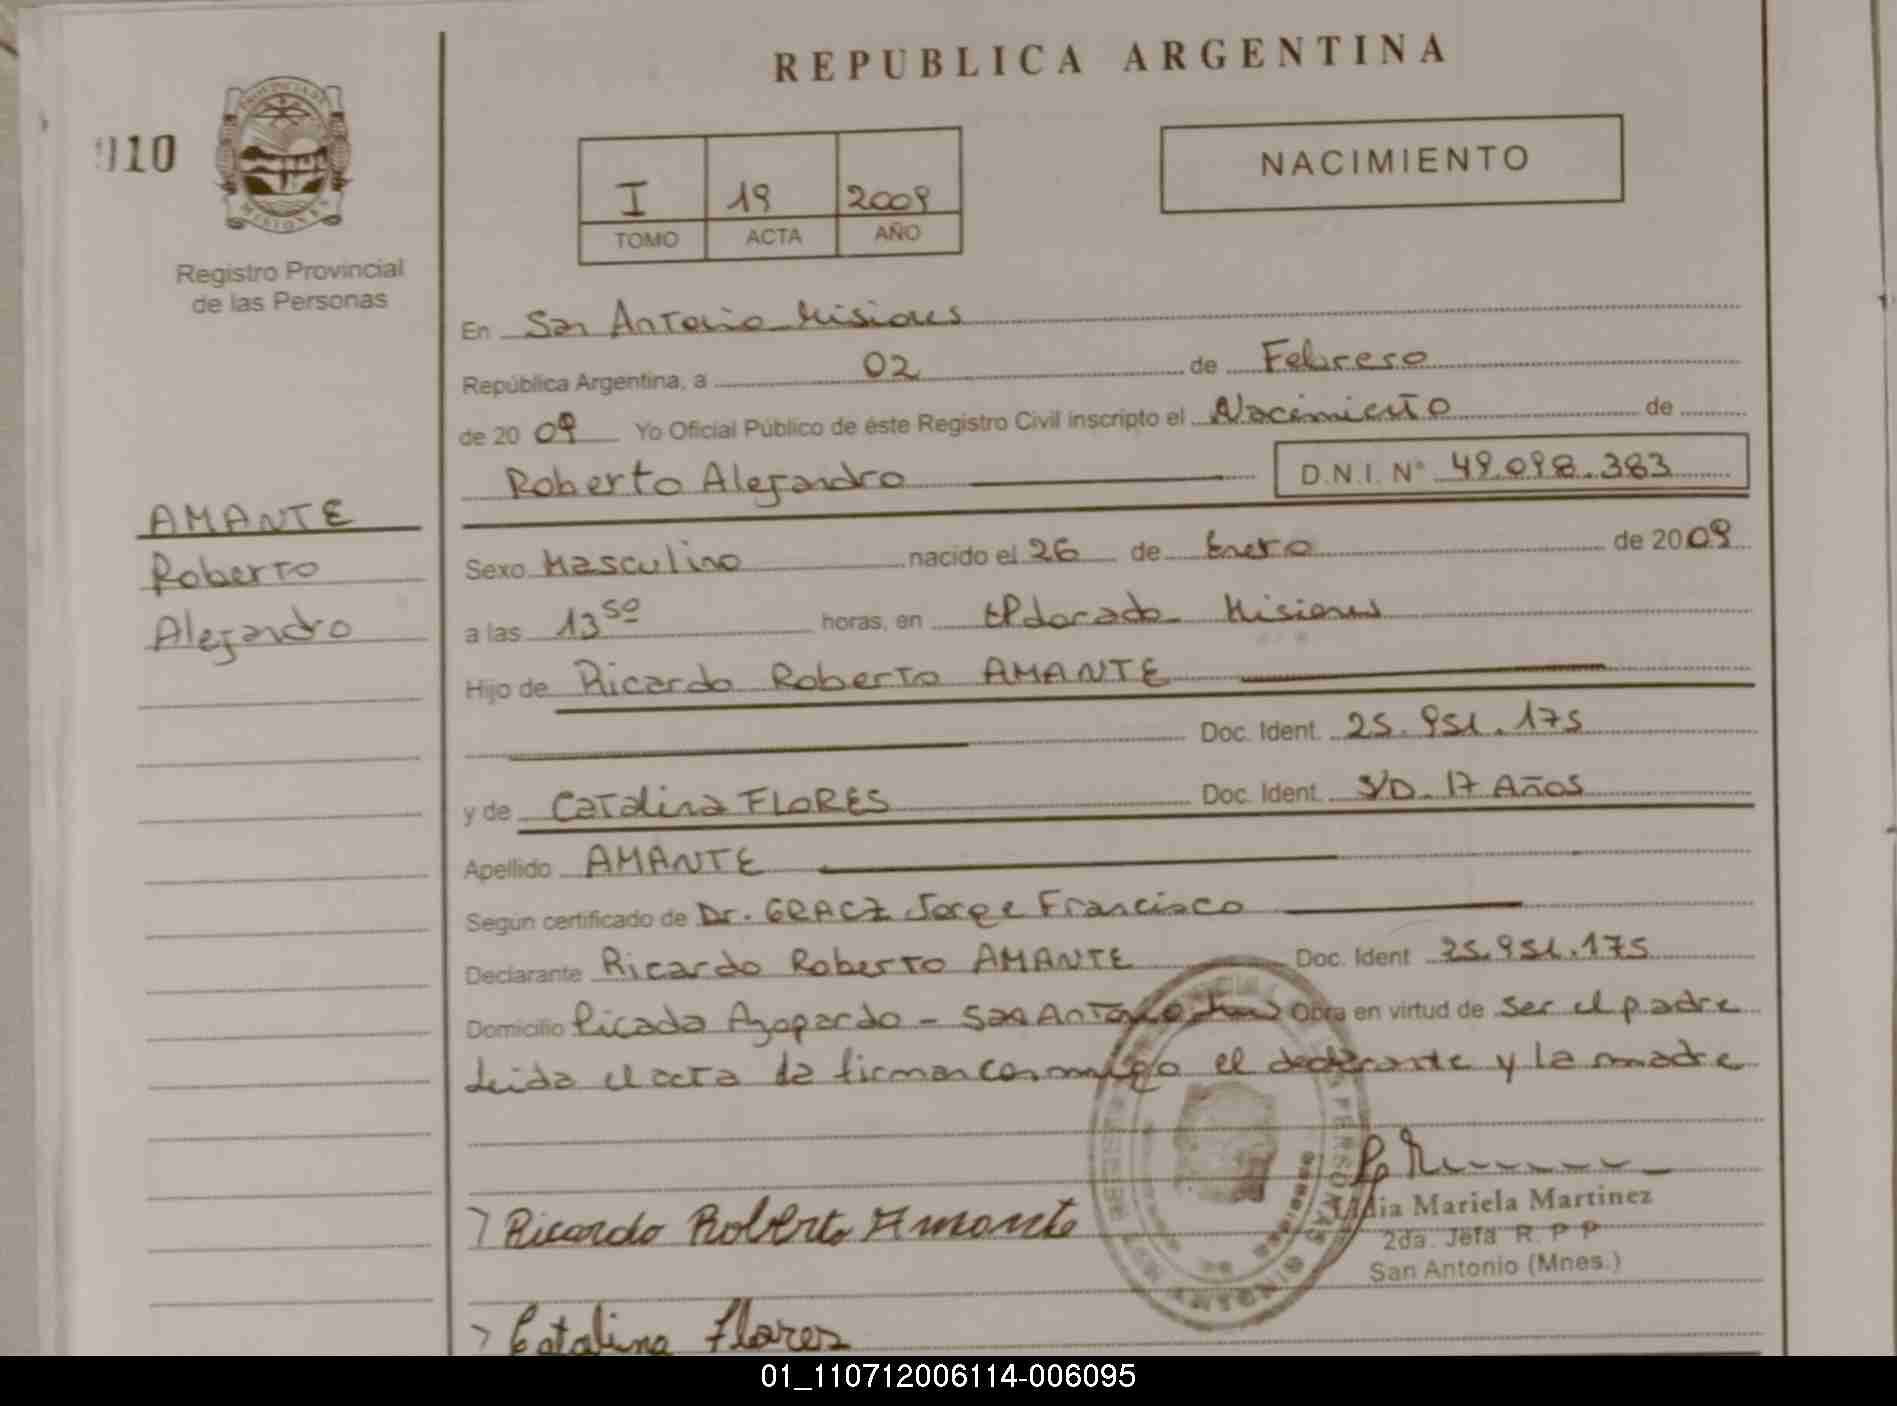 REPUBLICA ARGENTINA
110
PROVINCIA DE
MISIONES
Registro Provincial
de las Personas
I 19 2009
TOMO ACTA AÑO
NACIMIENTO
En San Antonio Misiones
República Argentina, a 02 de Febrero
de 20 09 Yo Oficial Público de éste Registro Civil inscripto el Nacimiento de
Roberto Alejandro D.N.I. N° 49.098.383
AMANTE
Roberto
Alejandro
Sexo Masculino nacido el 26 de Enero de 2009
a las 13 50 horas, en Eldorado Misiones
Hijo de Ricardo Roberto AMANTE
Doc. Ident. 25.951.175
y de Catalina FLORES Doc. Ident. S/D. 17 Años
Apellido AMANTE
Según certificado de Dr. GRACZ Jorge Francisco
Declarante Ricardo Roberto AMANTE Doc. Ident 25.951.175
Domicilio Picada Azopardo - San Antonio Obra en virtud de ser el padre
Leida el acta la firman conmigo el declarante y la madre
Ricardo Roberto Amante
Lidia Mariela Martinez
2da. Jefa R. P P
San Antonio (Mnes.)
Catalina Flores
01_110712006114-006095